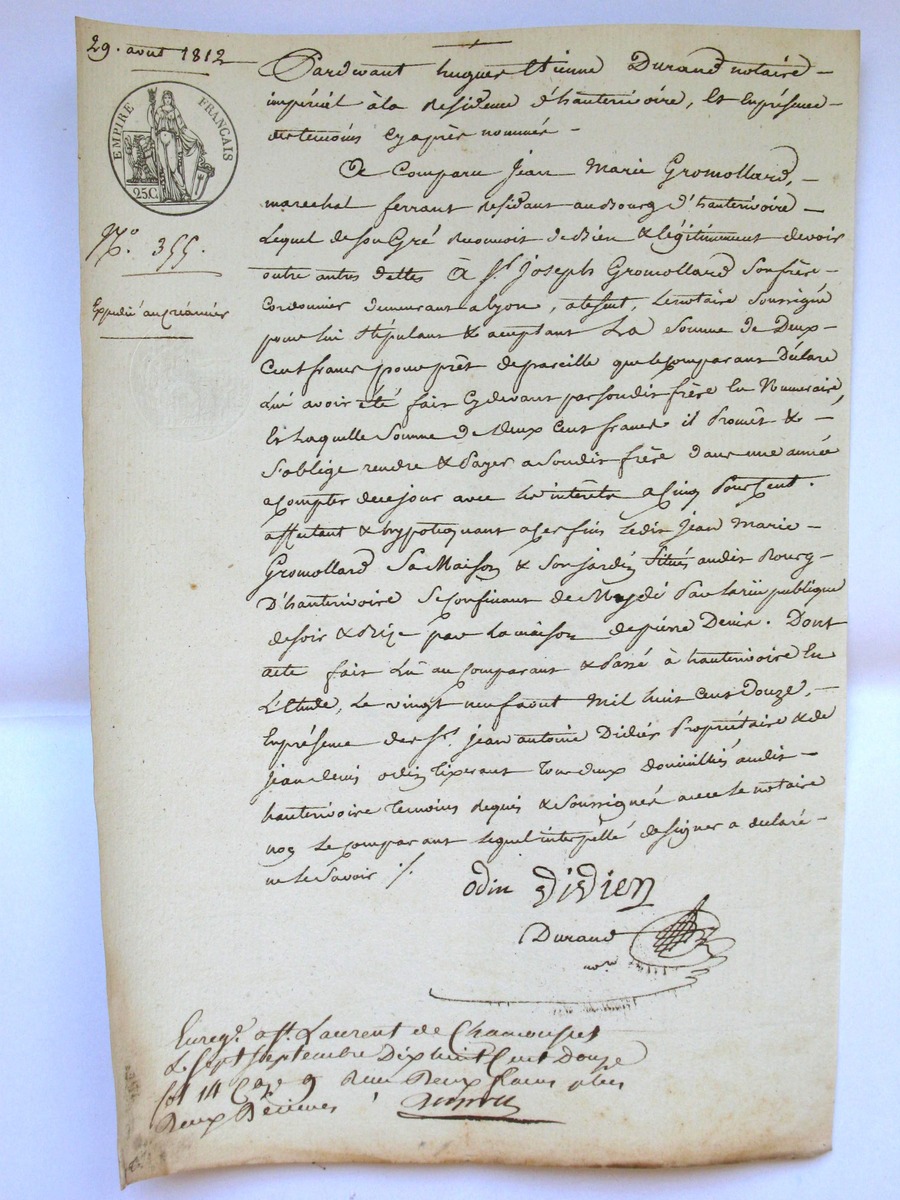 29. aout 1812
EMPIRE FRANÇAIS
25C.
N.o 355.
Expedié au créancier
Pardevant hugues Etienne Durand notaire
impérial à la Residence d'hauterivoire, et En présence
des temoins cy après nommés
A Comparu Jean Marie Gromollard,
marechal ferrant residant au Bourg d'hauterivoire
Lequel de Son Gré Reconnoit de Bien & légitimement devoir
outre autres dettes A Sr. Joseph Gromollard Son frère
Cordonnier demeurant a lyon, absent, Le notaire Soussigné
pour lui Stipulant & acceptant La Somme de Deux
Cent francs pour prêt de pareille que le comparant Déclare
lui avoir été fait Cy devant par son dit frère En Numeraire,
Et Laquelle Somme de Deux Cent francs il Promêt &
S'oblige rendre & Payer a Son dit frère dans une année
a Compter de ce jour avec les intérêts a Cinq Pour Cent.
affectant & hypotéquant a ces fins Ledit Jean Marie
Gromollard Sa Maison & Son jardin Situés audit Bourg
D'hauterivoire Se Confinant de Mydi Par la rüe publique
de soir & Bize par la maison de pierre Denis. Dont
acte fait Lû au Comparant & Passé à hauterivoire En
L'Etude, Le vingt neuf aout Mil huit Cent Douze,
En présence des Srs. Jean antoine Didier Propriétaire & de
Jean denis odin tixerant tous deux domiciliés audit
hauterivoire temoins requis & Soussignés avec le notaire
non le Comparant lequel interpellé de signer a déclaré
ne le Savoir ./.
odin Didier
Durand
nore
Enregé. a St. Laurent de Chamousset
Le Sept Septembre Dix huit Cent Douze
fol 14 Case 9 Recu Deux francs plus
Deux Décimes